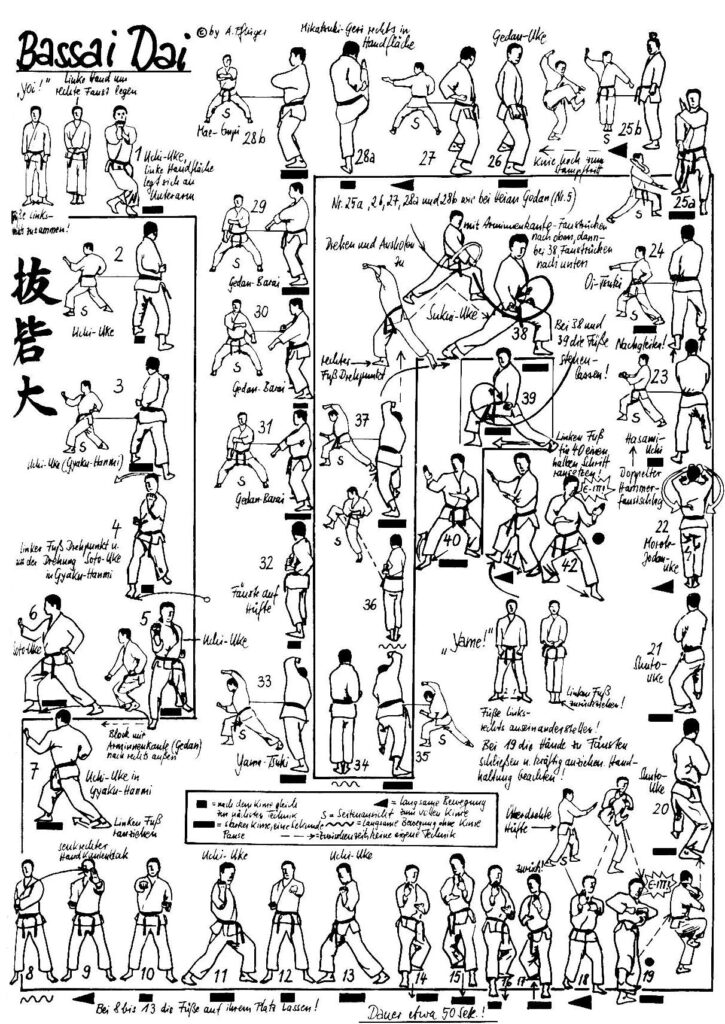 Bassai Dai
© by A. Pflüger
"Yoi!"
Linke Hand um
rechte Faust legen
1 Uchi-Uke,
linke Handfläche
legt sich an
Unterarm
Füße links-
zusammen!
抜砦大
2
S
Uchi-Uke
3
S
Uchi-Uke (Gyaku-Hanmi)
4
Linker Fuß Drehpunkt u.
mit der Drehung Soto-Uke
in Gyaku-Hanmi
5
Uchi-Uke
6
Soto-Uke
Block mit
Arminnenkante (Gedan)
nach rechts außen
7
Uchi-Uke in
Gyaku-Hanmi
Linken Fuß
ranziehen
senkrechter
Handkantenblock
8
9
10
Uchi-Uke
11
12
Uchi-Uke
13
14
15
16
17
zurück!
18
Überdrehte
Hüfte
E-ITTS
19
Bei 8 bis 13 die Füße auf ihrem Platz lassen!
Dauer etwa 50 Sek.!
20
Shuto-
Uke
21
Shuto-
Uke
22
Morote-
Jodan-
Uke
23
Hasami-
Uchi
Doppelter
Hammer-
faustschlag
24
Oi-Tsuki
Nachgleiten!
S
25a
S
25b
S
Knie hoch zum
Gedan-Uke
26
27
S
Mikatsuki-Geri rechts in
Handfläche
28a
28b
S
Mae-Empi
Nr. 25a, 26, 27, 28a und 28b wie bei Heian Godan (Nr. 5)
29
S
Gedan-Barai
30
S
Gedan-Barai
31
S
Gedan-Barai
32
Fäuste auf
Hüfte
33
S
Yama-Tsuki
34
35
S
36
S
37
S
Drehen und Ausholen
zu
Sukui-Uke
rechter
Fuß Drehpunkt
mit Arminnenkante-Faustrücken
nach oben, dann
bei 38, Faustrücken
nach unten
38
Bei 38 und
39 die Füße
stehen-
lassen!
39
Linken Fuß
für 40 einen
halben Schritt
ransetzen!
40
41
E-ITTS
42
"Yame!"
Linken Fuß
zurückziehen!
Füße links-
rechts auseinanderstellen!
Bei 19 die Hände zu Fäusten
schließen u. kräftig anziehen. Hand-
haltung beachten!
= nach dem Kime gleich
zur nächsten Technik
= starker Kime, eine Sekunde
Pause
= langsame Bewegung
S = Seitenansicht zum vollen Kime
= langsame Bewegung ohne Kime
= Zwischenschritt, keine eigene Technik